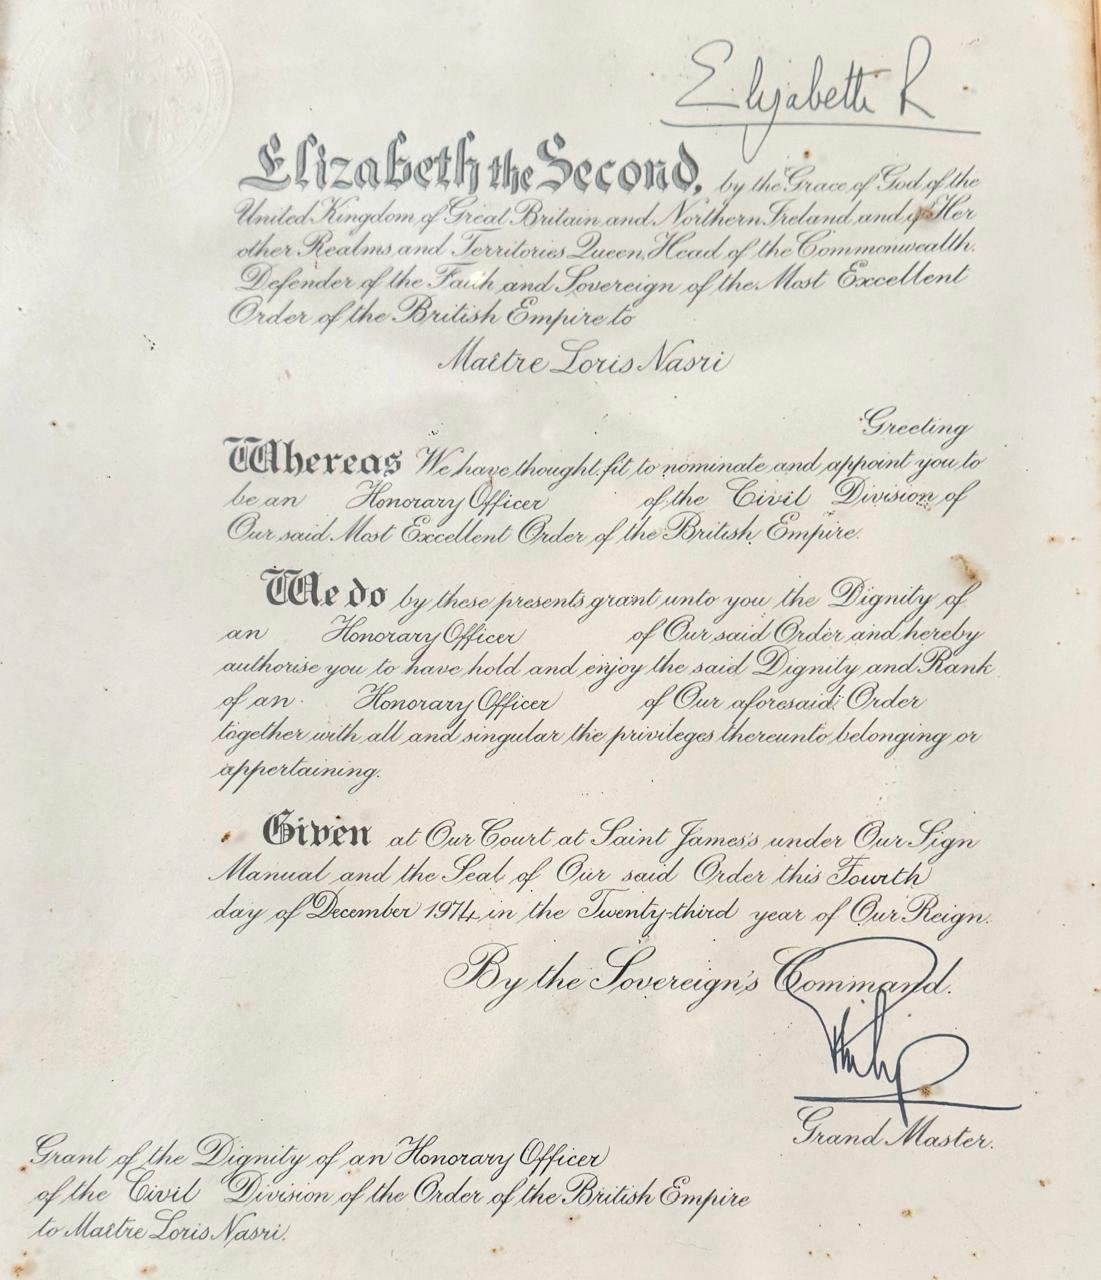 Elizabeth R
Elizabeth the Second, by the Grace of God of the
United Kingdom of Great Britain and Northern Ireland and of Her
other Realms and Territories Queen, Head of the Commonwealth,
Defender of the Faith and Sovereign of the Most Excellent
Order of the British Empire to
Maître Loris Nasri
Greeting
Whereas We have thought fit to nominate and appoint you to
be an Honorary Officer of the Civil Division of
Our said Most Excellent Order of the British Empire.
We do by these presents grant unto you the Dignity of
an Honorary Officer of Our said Order and hereby
authorise you to have hold and enjoy the said Dignity and Rank
of an Honorary Officer of Our aforesaid Order
together with all and singular the privileges thereunto belonging or
appertaining.
Given at Our Court at Saint James's under Our Sign
Manual and the Seal of Our said Order this Fourth
day of December 1974, in the Twenty-third year of Our Reign.
By the Sovereign's Command.
Philip
Grand Master.
Grant of the Dignity of an Honorary Officer
of the Civil Division of the Order of the British Empire
to Maître Loris Nasri.